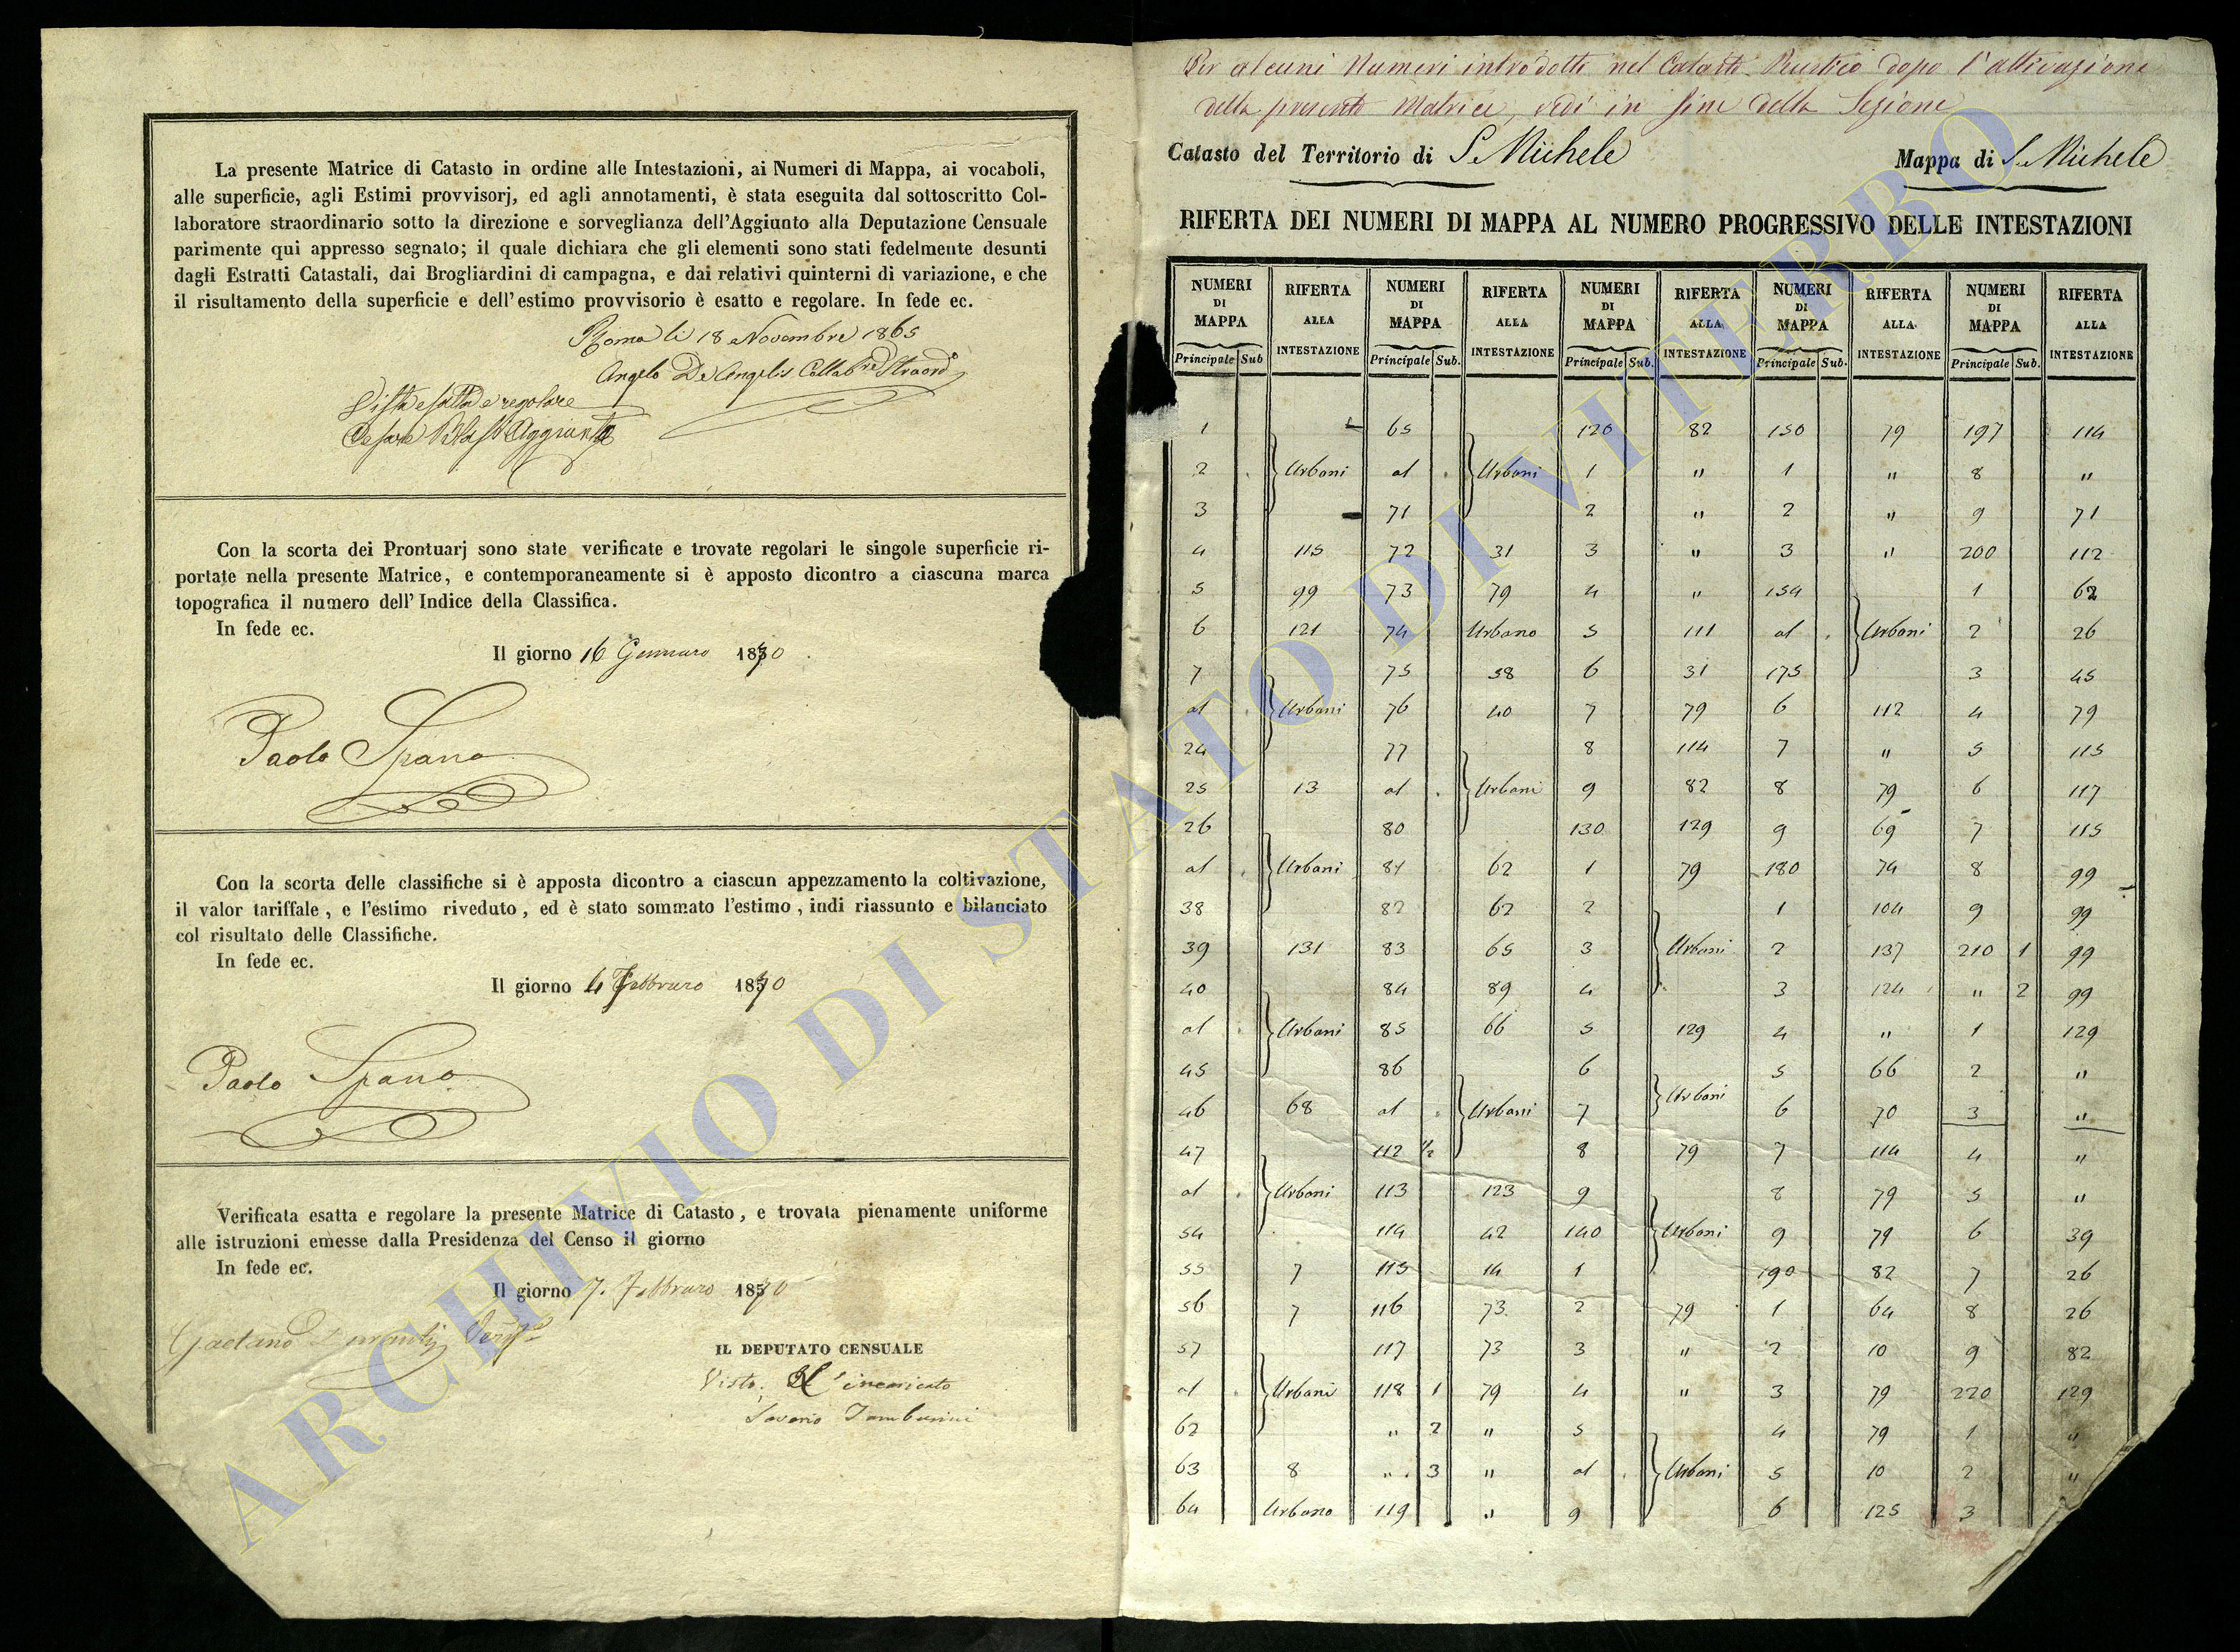 La presente Matrice di Catasto in ordine alle Intestazioni, ai Numeri di Mappa, ai vocaboli,
alle superficie, agli Estimi provvisorj, ed agli annotamenti, è stata eseguita dal sottoscritto Col-
laboratore straordinario sotto la direzione e sorveglianza dell'Aggiunto alla Deputazione Censuale
parimente qui appresso segnato; il quale dichiara che gli elementi sono stati fedelmente desunti
dagli Estratti Catastali, dai Brogliardini di campagna, e dai relativi quinterni di variazione, e che
il risultamento della superficie e dell'estimo provvisorio è esatto e regolare. In fede ec.
Roma li 18 Novembre 1865
Angelo De Angelis Collab.re Straord.o
Vista esatta e regolare
Aggiunto
Con la scorta dei Prontuarj sono state verificate e trovate regolari le singole superficie ri-
portate nella presente Matrice, e contemporaneamente si è apposto dicontro a ciascuna marca
topografica il numero dell'Indice della Classifica.
In fede ec.
Il giorno 16 Gennaro 1870
Paolo Spana
Con la scorta delle classifiche si è apposta dicontro a ciascun appezzamento la coltivazione,
il valor tariffale, e l'estimo riveduto, ed è stato sommato l'estimo, indi riassunto e bilanciato
col risultato delle Classifiche.
In fede ec.
Il giorno 4 Febbraro 1870
Paolo Spana
Verificata esatta e regolare la presente Matrice di Catasto, e trovata pienamente uniforme
alle istruzioni emesse dalla Presidenza del Censo il giorno
In fede ec.
Il giorno 7. Febbraro 1870
Gaetano
IL DEPUTATO CENSUALE
Visto; L'incaricato
Saverio Tamburini
Per alcuni Numeri introdotti nel Catasto Rustico dopo l'attivazione
della presente Matrice, vedi in fine della Sezione
Catasto del Territorio di S. Michele Mappa di S. Michele
RIFERTA DEI NUMERI DI MAPPA AL NUMERO PROGRESSIVO DELLE INTESTAZIONI
NUMERI RIFERTA NUMERI RIFERTA NUMERI RIFERTA NUMERI RIFERTA NUMERI RIFERTA
DI DI DI DI DI
MAPPA ALLA MAPPA ALLA MAPPA ALLA MAPPA ALLA MAPPA ALLA
INTESTAZIONE INTESTAZIONE INTESTAZIONE INTESTAZIONE INTESTAZIONE
Principale Sub Principale Sub. Principale Sub. Principale Sub. Principale Sub.
1 65 120 82 150 79 197 114
2 Urbani al Urbani 1 " 1 " 8 "
3 71 2 " 2 " 9 71
4 115 72 31 3 " 3 " 200 112
5 99 73 79 4 " 154 1 62
6 121 74 Urbano 5 111 al Urbani 2 26
7 75 58 6 31 175 3 45
al Urbani 76 40 7 79 6 112 4 79
24 77 8 114 7 " 5 115
25 13 al Urbani 9 82 8 79 6 117
26 80 130 129 9 69 7 115
al Urbani 81 62 1 79 180 74 8 99
38 82 62 2 1 104 9 99
39 131 83 65 3 Urbani 2 137 210 1 99
40 84 89 4 3 124 " 2 99
al Urbani 85 66 5 129 4 " 1 129
45 86 6 5 66 2 "
46 68 al Urbani 7 Urbani 6 70 3 "
47 112 1/2 8 79 7 114 4 "
al Urbani 113 123 9 8 79 5 "
54 114 42 140 Urbani 9 79 6 39
55 7 115 14 1 190 82 7 26
56 7 116 73 2 79 1 64 8 26
57 117 73 3 " 2 10 9 82
al Urbani 118 1 79 4 " 3 79 220 129
62 " 2 " 5 4 79 1 "
63 8 " 3 " al Urbani 5 10 2 "
64 Urbano 119 " 9 6 125 3
ARCHIVIO DI STATO DI VITERBO